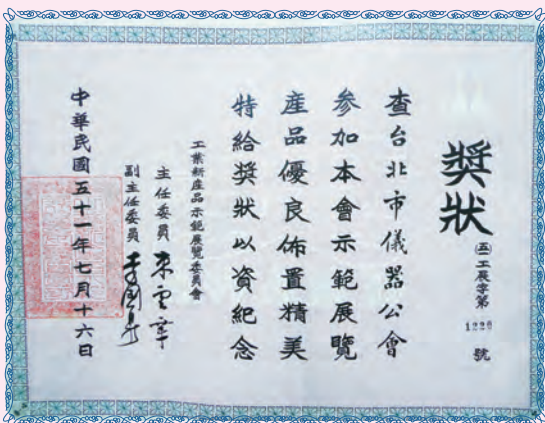 獎狀
㊄工展字第1220號
查台北市儀器公會
參加本會示範展覽
產品優良佈置精美
特給獎狀以資紀念
工業新產品示範展覽委員會
主任委員
副主任委員
中華民國五十一年七月十六日